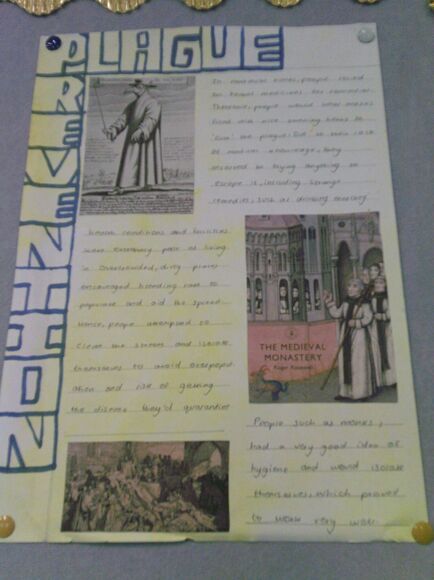 PLAGUE
PREVENTION
In medieval times, people relied
on herbal medicines for remedies.
Therefore, people would wear masks
lined with nice smelling herbs to
the plague. Due to their lack
of medical knowledge, they
resorted to trying anything to
escape it, including strange
remedies, such as drinking
conditions and facilities
were poor as living
in overcrowded, dirty places
encouraged breeding rats to
populate and aid the spread.
Hence, people attempted to
clean the streets and isolate
themselves to avoid overpopul
ation and risk of getting
the disease, they'd quarantine
THE MEDIEVAL
MONASTERY
Roger
People such as monks,
had a very good idea of
hygiene and would isolate
themselves, which proved
to work very well.